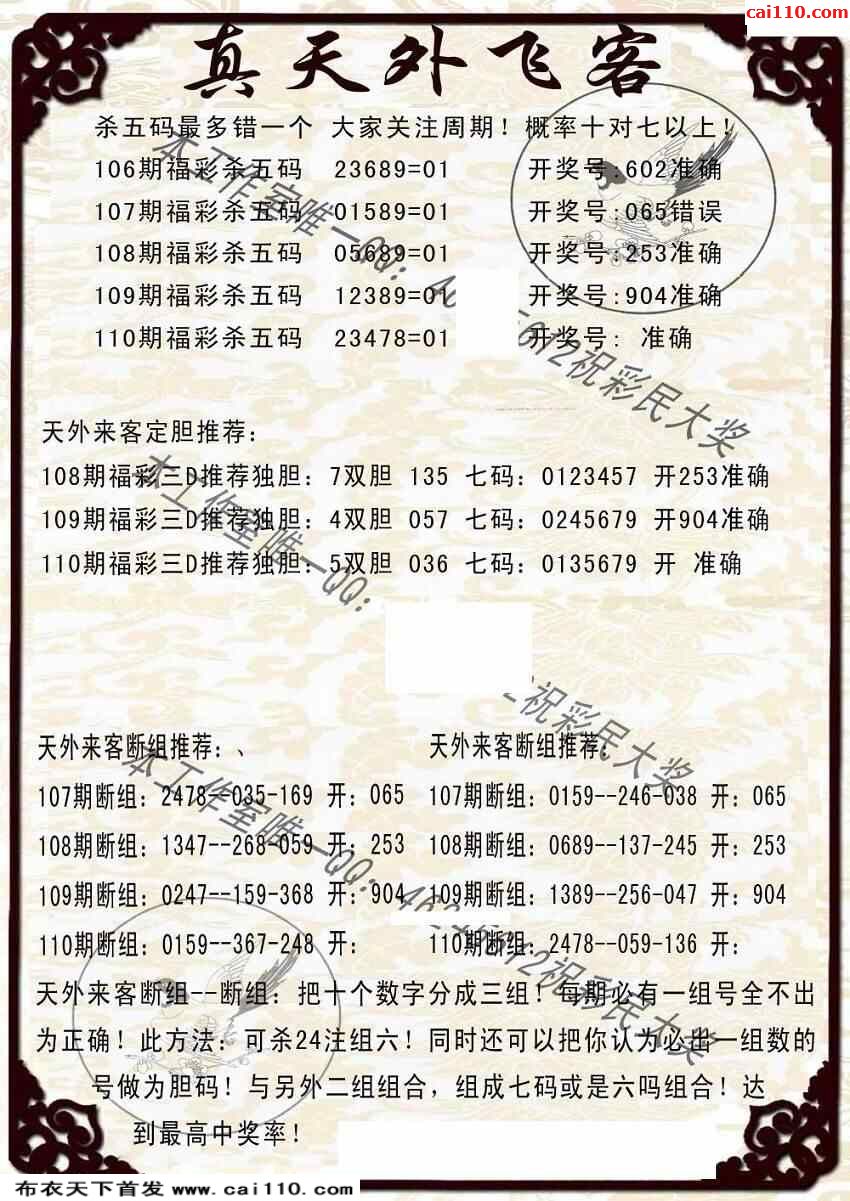 cai110.com
真天外飞客
杀五码最多错一个 大家关注周期！概率十对七以上！
106期福彩杀五码 23689=01 开奖号:602准确
107期福彩杀五码 01589=01 开奖号:065错误
108期福彩杀五码 05689=01 开奖号:253准确
109期福彩杀五码 12389=01 开奖号:904准确
110期福彩杀五码 23478=01 开奖号: 准确
天外来客定胆推荐：
108期福彩三D推荐独胆：7双胆 135 七码：0123457 开253准确
109期福彩三D推荐独胆：4双胆 057 七码：0245679 开904准确
110期福彩三D推荐独胆：5双胆 036 七码：0135679 开 准确
天外来客断组推荐：、 天外来客断组推荐：
107期断组：2478--035-169 开：065 107期断组：0159--246-038 开：065
108期断组：1347--268-059 开：253 108期断组：0689--137-245 开：253
109期断组：0247--159-368 开：904 109期断组：1389--256-047 开：904
110期断组：0159--367-248 开： 110期断组：2478--059-136 开：
天外来客断组--断组：把十个数字分成三组！每期必有一组号全不出
为正确！此方法：可杀24注组六！同时还可以把你认为必出一组数的
号做为胆码！与另外二组组合，组成七码或是六吗组合！达
到最高中奖率！
本工作室唯一QQ： 祝彩民大奖
本工作室唯一QQ： 祝彩民大奖
本工作室唯一QQ： 祝彩民大奖
布衣天下首发 www.cai110.com